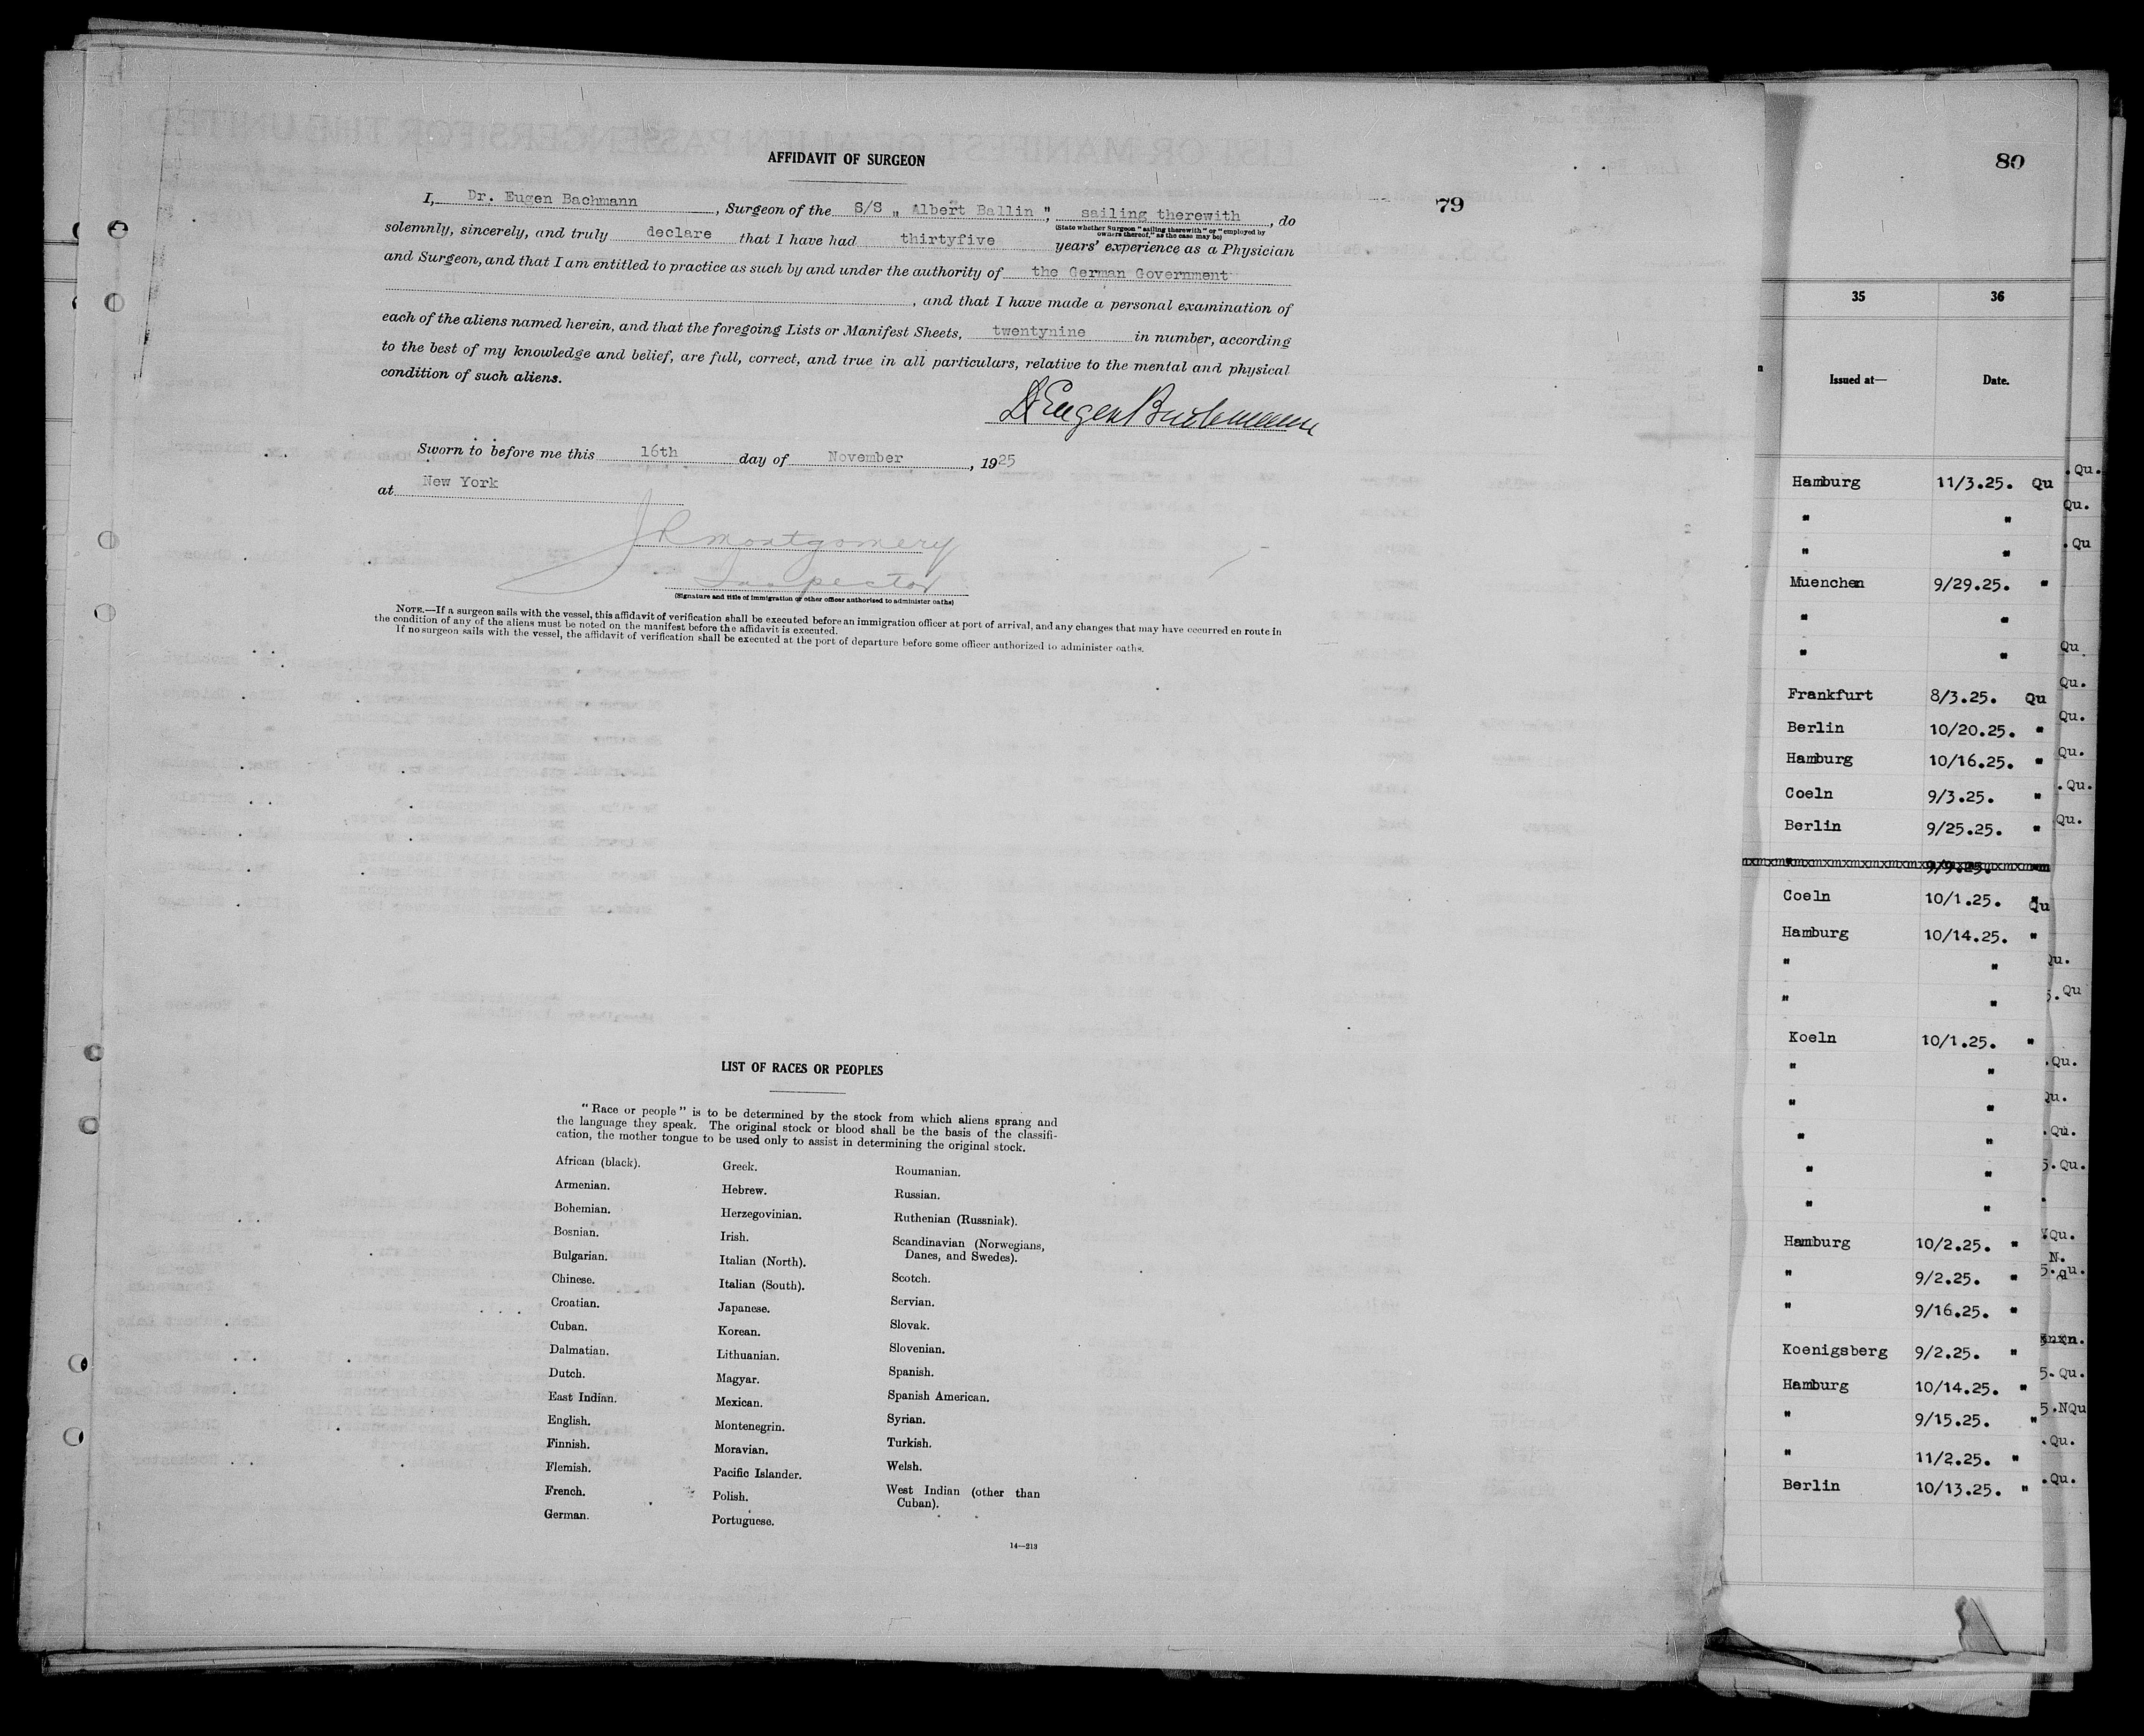 AFFIDAVIT OF SURGEON
79
I, Dr. Eugen Bachmann, Surgeon of the S/S „ Albert Ballin ", sailing therewith, do
(State whether Surgeon "sailing therewith" or "employed by
owners thereof," as the case may be)
solemnly, sincerely, and truly declare that I have had thirtyfive years' experience as a Physician
and Surgeon, and that I am entitled to practice as such by and under the authority of the German Government
, and that I have made a personal examination of
each of the aliens named herein, and that the foregoing Lists or Manifest Sheets, twentynine in number, according
to the best of my knowledge and belief, are full, correct, and true in all particulars, relative to the mental and physical
condition of such aliens.
Dr Eugen Bachmann
Sworn to before me this 16th day of November, 1925
at New York
Montgomery
Inspector
(Signature and title of immigration or other officer authorized to administer oaths)
NOTE.—If a surgeon sails with the vessel, this affidavit of verification shall be executed before an immigration officer at port of arrival, and any changes that may have occurred en route in
the condition of any of the aliens must be noted on the manifest before the affidavit is executed.
If no surgeon sails with the vessel, the affidavit of verification shall be executed at the port of departure before some officer authorized to administer oaths.
LIST OF RACES OR PEOPLES
"Race or people" is to be determined by the stock from which aliens sprang and
the language they speak. The original stock or blood shall be the basis of the classifi-
cation, the mother tongue to be used only to assist in determining the original stock.
African (black).
Armenian.
Bohemian.
Bosnian.
Bulgarian.
Chinese.
Croatian.
Cuban.
Dalmatian.
Dutch.
East Indian.
English.
Finnish.
Flemish.
French.
German.
Greek.
Hebrew.
Herzegovinian.
Irish.
Italian (North).
Italian (South).
Japanese.
Korean.
Lithuanian.
Magyar.
Mexican.
Montenegrin.
Moravian.
Pacific Islander.
Polish.
Portuguese.
Roumanian.
Russian.
Ruthenian (Russniak).
Scandinavian (Norwegians,
Danes, and Swedes).
Scotch.
Servian.
Slovak.
Slovenian.
Spanish.
Spanish American.
Syrian.
Turkish.
Welsh.
West Indian (other than
Cuban).
14—213
80
35 36
Issued at— Date.
Hamburg 11/3.25. Qu
" "
" "
Muenchen 9/29.25. "
" "
" "
Frankfurt 8/3.25. Qu
Berlin 10/20.25. "
Hamburg 10/16.25. "
Coeln 9/3.25. "
Berlin 9/25.25. "
9/9.25.
Coeln 10/1.25. Qu
Hamburg 10/14.25. "
" "
" "
Koeln 10/1.25. "
" "
" "
" "
" "
" "
Hamburg 10/2.25. "
" 9/2.25. "
" 9/16.25. "
Koenigsberg 9/2.25. "
Hamburg 10/14.25. "
" 9/15.25. "
" 11/2.25. "
Berlin 10/13.25. "